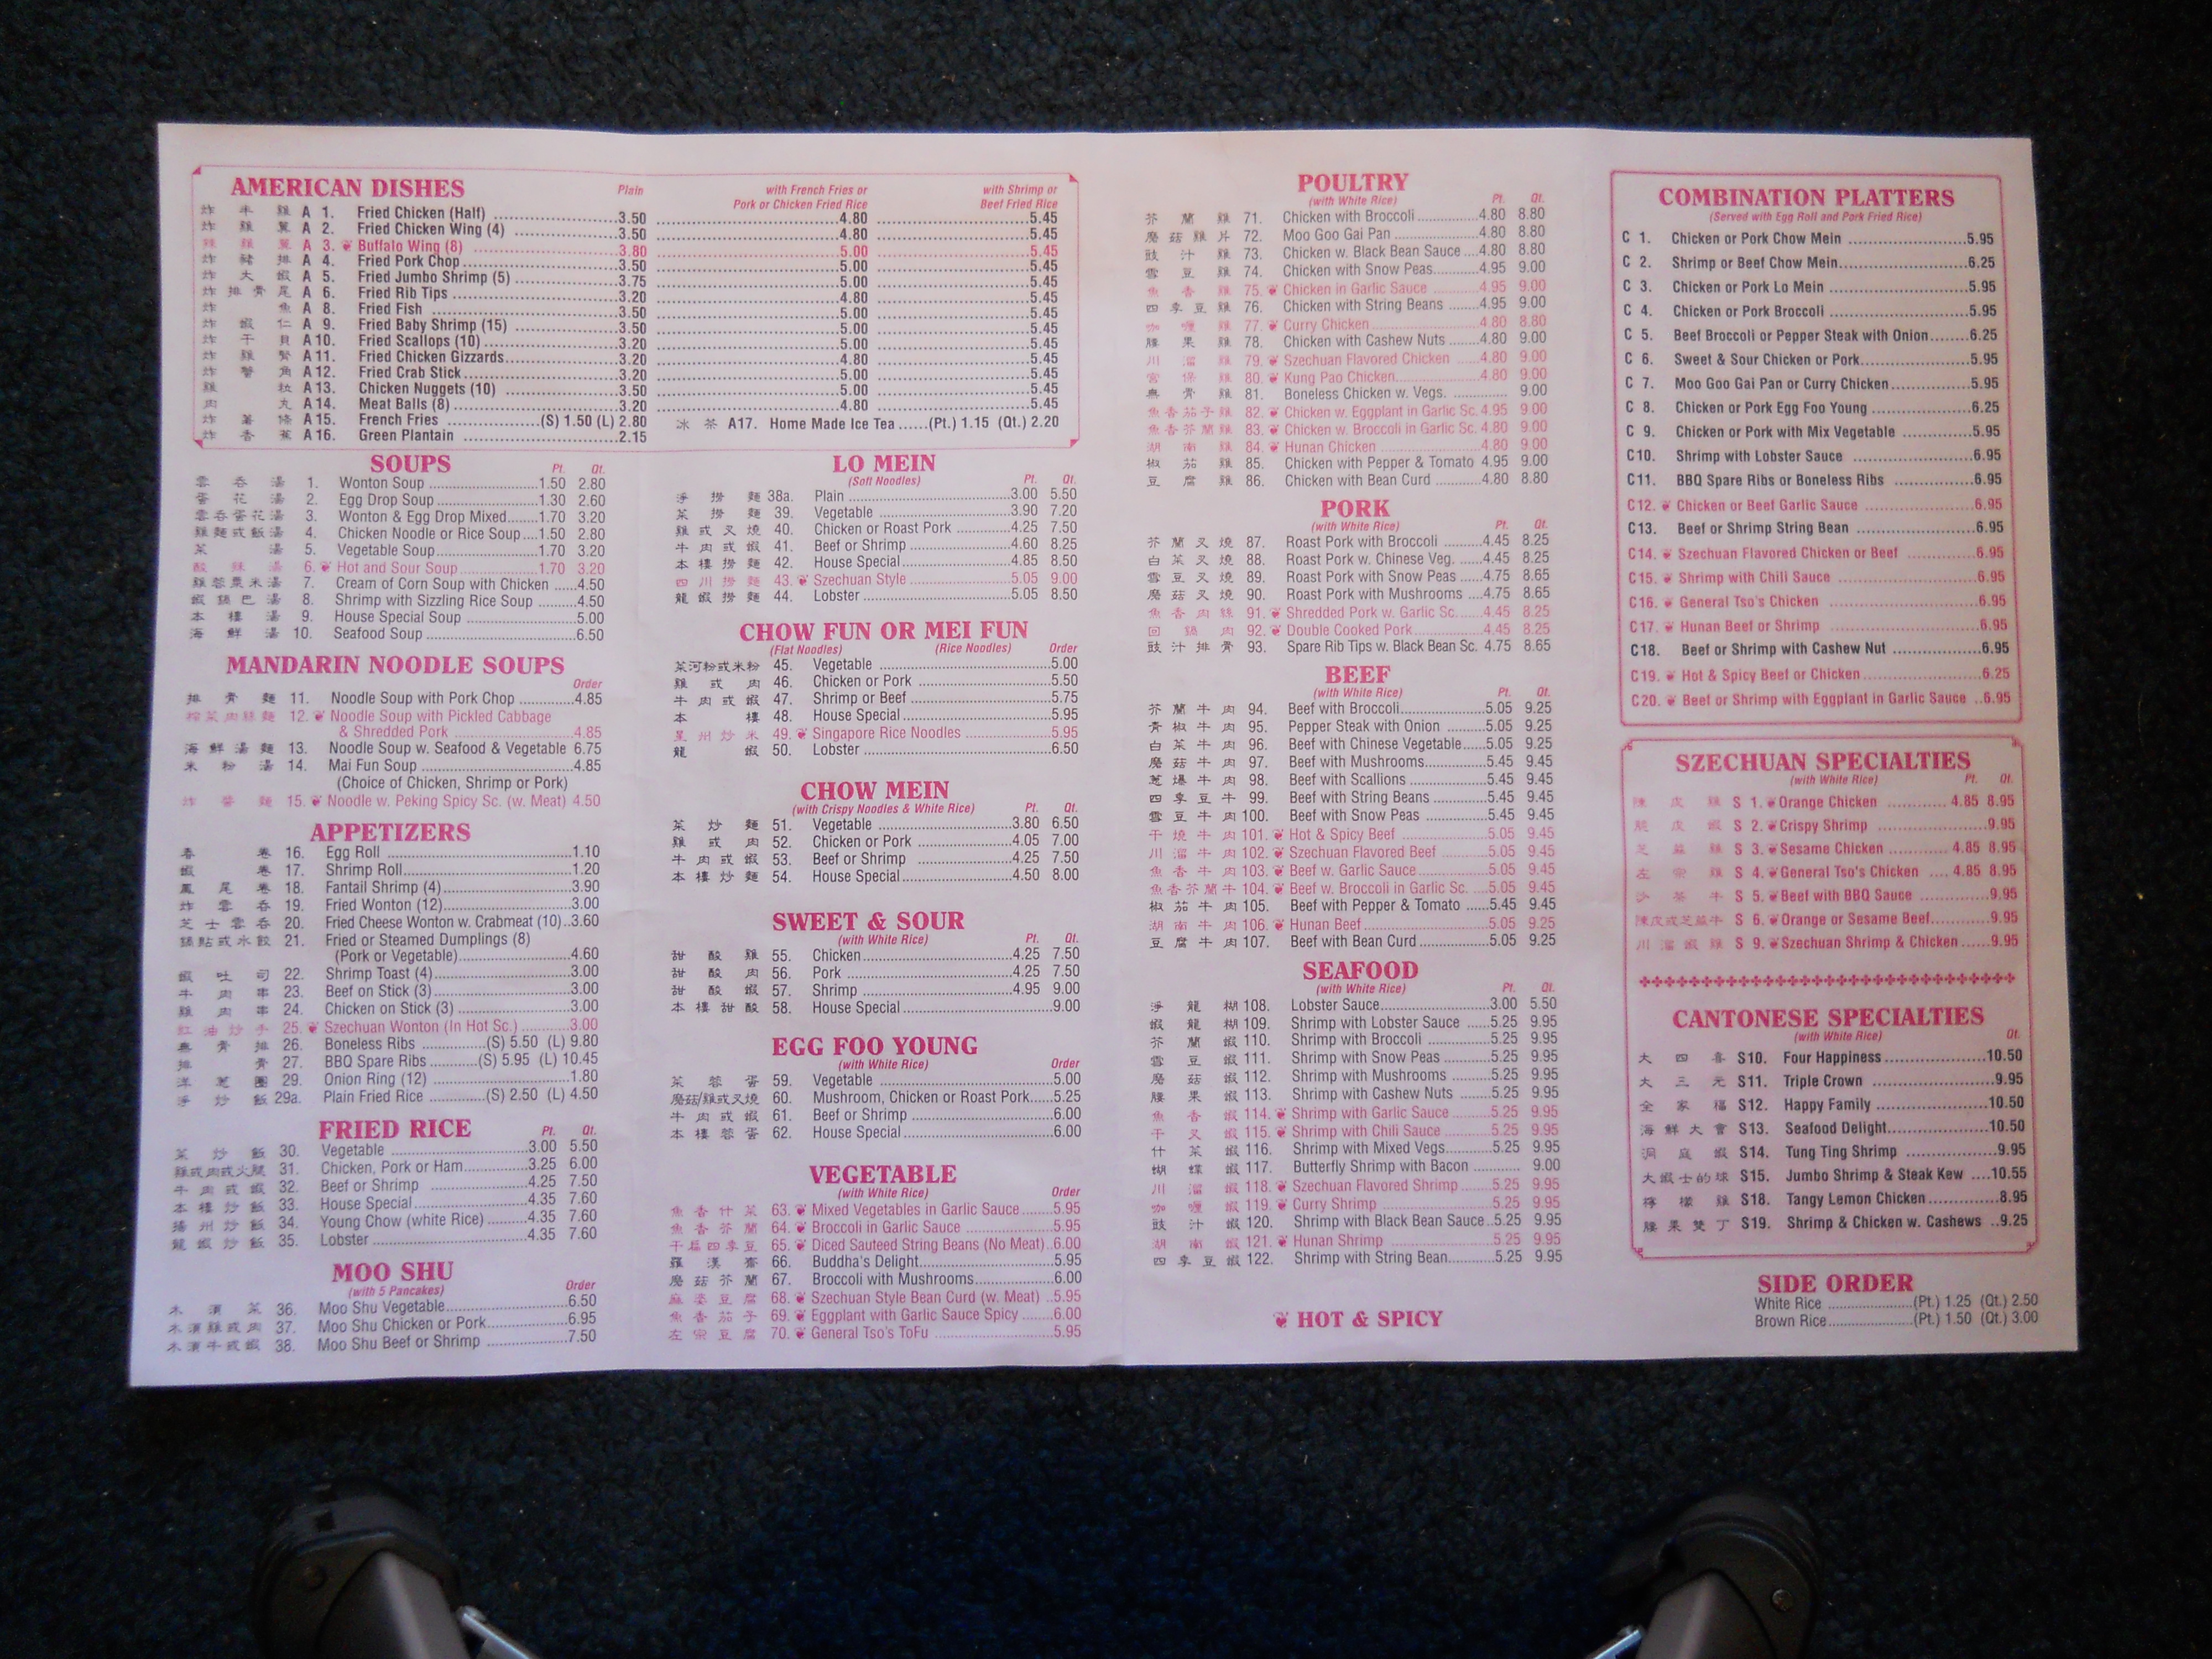 AMERICAN DISHES Plain with French Fries or Pork or Chicken Fried Rice with Shrimp or Beef Fried Rice
炸半雞 A 1. Fried Chicken (Half) 3.50 4.80 5.45
炸雞翼 A 2. Fried Chicken Wing (4) 3.50 4.80 5.45
辣雞翼 A 3. Buffalo Wing (8) 3.80 5.00 5.45
炸豬排 A 4. Fried Pork Chop 3.50 5.00 5.45
炸大蝦 A 5. Fried Jumbo Shrimp (5) 3.75 5.00 5.45
炸排骨尾 A 6. Fried Rib Tips 3.20 4.80 5.45
炸魚 A 8. Fried Fish 3.50 5.00 5.45
炸蝦仁 A 9. Fried Baby Shrimp (15) 3.50 5.00 5.45
炸干貝 A10. Fried Scallops (10) 3.20 5.00 5.45
炸雞腎 A11. Fried Chicken Gizzards 3.20 4.80 5.45
炸蟹角 A12. Fried Crab Stick 3.20 5.00 5.45
A13. Chicken Nuggets (10) 3.50 5.00 5.45
肉丸 A14. Meat Balls (8) 3.20 4.80 5.45
炸薯條 A15. French Fries (S) 1.50 (L) 2.80
炸香蕉 A16. Green Plantain 2.15
冰茶 A17. Home Made Ice Tea (Pt.) 1.15 (Qt.) 2.20
SOUPS Pt. Qt.
雲吞湯 1. Wonton Soup 1.50 2.80
蛋花湯 2. Egg Drop Soup 1.30 2.60
雲吞蛋花湯 3. Wonton & Egg Drop Mixed 1.70 3.20
雞麵或飯湯 4. Chicken Noodle or Rice Soup 1.50 2.80
菜湯 5. Vegetable Soup 1.70 3.20
酸辣湯 6. Hot and Sour Soup 1.70 3.20
雞蓉粟米湯 7. Cream of Corn Soup with Chicken 4.50
蝦鍋巴湯 8. Shrimp with Sizzling Rice Soup 4.50
本樓湯 9. House Special Soup 5.00
海鮮湯 10. Seafood Soup 6.50
MANDARIN NOODLE SOUPS
Order
排骨麵 11. Noodle Soup with Pork Chop 4.85
榨菜肉絲麵 12. Noodle Soup with Pickled Cabbage
& Shredded Pork 4.85
海鮮湯麵 13. Noodle Soup w. Seafood & Vegetable 6.75
米粉湯 14. Mai Fun Soup 4.85
(Choice of Chicken, Shrimp or Pork)
炸醬麵 15. Noodle w. Peking Spicy Sc. (w. Meat) 4.50
APPETIZERS
春卷 16. Egg Roll 1.10
蝦卷 17. Shrimp Roll 1.20
鳳尾卷 18. Fantail Shrimp (4) 3.90
炸雲吞 19. Fried Wonton (12) 3.00
芝士雲吞 20. Fried Cheese Wonton w. Crabmeat (10) 3.60
鍋貼或水餃 21. Fried or Steamed Dumplings (8)
(Pork or Vegetable) 4.60
蝦吐司 22. Shrimp Toast (4) 3.00
牛肉串 23. Beef on Stick (3) 3.00
雞肉串 24. Chicken on Stick (3) 3.00
紅油炒手 25. Szechuan Wonton (In Hot Sc.) 3.00
無骨排 26. Boneless Ribs (S) 5.50 (L) 9.80
排骨 27. BBQ Spare Ribs (S) 5.95 (L) 10.45
洋蔥圈 29. Onion Ring (12) 1.80
淨炒飯 29a. Plain Fried Rice (S) 2.50 (L) 4.50
FRIED RICE Pt. Qt.
菜炒飯 30. Vegetable 3.00 5.50
雞或肉或火腿 31. Chicken, Pork or Ham 3.25 6.00
牛肉或蝦 32. Beef or Shrimp 4.25 7.50
本樓炒飯 33. House Special 4.35 7.60
揚州炒飯 34. Young Chow (white Rice) 4.35 7.60
龍蝦炒飯 35. Lobster 4.35 7.60
MOO SHU
(with 5 Pancakes) Order
木須菜 36. Moo Shu Vegetable 6.50
木須雞或肉 37. Moo Shu Chicken or Pork 6.95
木須牛或蝦 38. Moo Shu Beef or Shrimp 7.50
LO MEIN
(Soft Noodles) Pt. Qt.
淨撈麵 38a. Plain 3.00 5.50
菜撈麵 39. Vegetable 3.90 7.20
雞或叉燒 40. Chicken or Roast Pork 4.25 7.50
牛肉或蝦 41. Beef or Shrimp 4.60 8.25
本樓撈麵 42. House Special 4.85 8.50
四川撈麵 43. Szechuan Style 5.05 9.00
龍蝦撈麵 44. Lobster 5.05 8.50
CHOW FUN OR MEI FUN
(Flat Noodles) (Rice Noodles) Order
菜河粉或米粉 45. Vegetable 5.00
雞或肉 46. Chicken or Pork 5.50
牛肉或蝦 47. Shrimp or Beef 5.75
本樓 48. House Special 5.95
星州炒米 49. Singapore Rice Noodles 5.95
龍蝦 50. Lobster 6.50
CHOW MEIN
(with Crispy Noodles & White Rice) Pt. Qt.
菜炒麵 51. Vegetable 3.80 6.50
雞或肉 52. Chicken or Pork 4.05 7.00
牛肉或蝦 53. Beef or Shrimp 4.25 7.50
本樓炒麵 54. House Special 4.50 8.00
SWEET & SOUR
(with White Rice) Pt. Qt.
甜酸雞 55. Chicken 4.25 7.50
甜酸肉 56. Pork 4.25 7.50
甜酸蝦 57. Shrimp 4.95 9.00
本樓甜酸 58. House Special 9.00
EGG FOO YOUNG
(with White Rice) Order
菜蓉蛋 59. Vegetable 5.00
蘑菇/雞或叉燒 60. Mushroom, Chicken or Roast Pork 5.25
牛肉或蝦 61. Beef or Shrimp 6.00
本樓蓉蛋 62. House Special 6.00
VEGETABLE
(with White Rice) Order
魚香什菜 63. Mixed Vegetables in Garlic Sauce 5.95
魚香芥蘭 64. Broccoli in Garlic Sauce 5.95
干扁四季豆 65. Diced Sauteed String Beans (No Meat) 6.00
羅漢齋 66. Buddha's Delight 5.95
蘑菇芥蘭 67. Broccoli with Mushrooms 6.00
麻婆豆腐 68. Szechuan Style Bean Curd (w. Meat) 5.95
魚香茄子 69. Eggplant with Garlic Sauce Spicy 6.00
左宗豆腐 70. General Tso's ToFu 5.95
POULTRY
(with White Rice) Pt. Qt.
芥蘭雞 71. Chicken with Broccoli 4.80 8.80
蘑菇雞片 72. Moo Goo Gai Pan 4.80 8.80
豉汁雞 73. Chicken w. Black Bean Sauce 4.80 8.80
雪豆雞 74. Chicken with Snow Peas 4.95 9.00
魚香雞 75. Chicken in Garlic Sauce 4.95 9.00
四季豆雞 76. Chicken with String Beans 4.95 9.00
咖喱雞 77. Curry Chicken 4.80 8.80
腰果雞 78. Chicken with Cashew Nuts 4.80 9.00
川溜雞 79. Szechuan Flavored Chicken 4.80 9.00
宮保雞 80. Kung Pao Chicken 4.80 9.00
無骨雞 81. Boneless Chicken w. Vegs. 9.00
魚香茄子雞 82. Chicken w. Eggplant in Garlic Sc. 4.95 9.00
魚香芥蘭雞 83. Chicken w. Broccoli in Garlic Sc. 4.80 9.00
湖南雞 84. Hunan Chicken 4.80 9.00
椒茄雞 85. Chicken with Pepper & Tomato 4.95 9.00
豆腐雞 86. Chicken with Bean Curd 4.80 8.80
PORK
(with White Rice) Pt. Qt.
芥蘭叉燒 87. Roast Pork with Broccoli 4.45 8.25
白菜叉燒 88. Roast Pork w. Chinese Veg. 4.45 8.25
雪豆叉燒 89. Roast Pork with Snow Peas 4.75 8.65
蘑菇叉燒 90. Roast Pork with Mushrooms 4.75 8.65
魚香肉絲 91. Shredded Pork w. Garlic Sc. 4.45 8.25
回鍋肉 92. Double Cooked Pork 4.45 8.25
豉汁排骨 93. Spare Rib Tips w. Black Bean Sc. 4.75 8.65
BEEF
(with White Rice) Pt. Qt.
芥蘭牛肉 94. Beef with Broccoli 5.05 9.25
青椒牛肉 95. Pepper Steak with Onion 5.05 9.25
白菜牛肉 96. Beef with Chinese Vegetable 5.05 9.25
蘑菇牛肉 97. Beef with Mushrooms 5.45 9.45
蔥爆牛肉 98. Beef with Scallions 5.45 9.45
四季豆牛 99. Beef with String Beans 5.45 9.45
雪豆牛肉 100. Beef with Snow Peas 5.45 9.45
干燒牛肉 101. Hot & Spicy Beef 5.05 9.45
川溜牛肉 102. Szechuan Flavored Beef 5.05 9.45
魚香牛肉 103. Beef w. Garlic Sauce 5.05 9.45
魚香芥蘭牛 104. Beef w. Broccoli in Garlic Sc. 5.05 9.45
椒茄牛肉 105. Beef with Pepper & Tomato 5.45 9.45
湖南牛肉 106. Hunan Beef 5.05 9.25
豆腐牛肉 107. Beef with Bean Curd 5.05 9.25
SEAFOOD
(with White Rice) Pt. Qt.
淨龍糊 108. Lobster Sauce 3.00 5.50
蝦龍糊 109. Shrimp with Lobster Sauce 5.25 9.95
芥蘭蝦 110. Shrimp with Broccoli 5.25 9.95
雪豆蝦 111. Shrimp with Snow Peas 5.25 9.95
蘑菇蝦 112. Shrimp with Mushrooms 5.25 9.95
腰果蝦 113. Shrimp with Cashew Nuts 5.25 9.95
魚香蝦 114. Shrimp with Garlic Sauce 5.25 9.95
干叉蝦 115. Shrimp with Chili Sauce 5.25 9.95
什菜蝦 116. Shrimp with Mixed Vegs. 5.25 9.95
蝴蝶蝦 117. Butterfly Shrimp with Bacon 9.00
川溜蝦 118. Szechuan Flavored Shrimp 5.25 9.95
咖喱蝦 119. Curry Shrimp 5.25 9.95
豉汁蝦 120. Shrimp with Black Bean Sauce 5.25 9.95
湖南蝦 121. Hunan Shrimp 5.25 9.95
四季豆蝦 122. Shrimp with String Bean 5.25 9.95
HOT & SPICY
COMBINATION PLATTERS
(Served with Egg Roll and Pork Fried Rice)
C 1. Chicken or Pork Chow Mein 5.95
C 2. Shrimp or Beef Chow Mein 6.25
C 3. Chicken or Pork Lo Mein 5.95
C 4. Chicken or Pork Broccoli 5.95
C 5. Beef Broccoli or Pepper Steak with Onion 6.25
C 6. Sweet & Sour Chicken or Pork 5.95
C 7. Moo Goo Gai Pan or Curry Chicken 5.95
C 8. Chicken or Pork Egg Foo Young 6.25
C 9. Chicken or Pork with Mix Vegetable 5.95
C10. Shrimp with Lobster Sauce 6.95
C11. BBQ Spare Ribs or Boneless Ribs 6.95
C12. Chicken or Beef Garlic Sauce 6.95
C13. Beef or Shrimp String Bean 6.95
C14. Szechuan Flavored Chicken or Beef 6.95
C15. Shrimp with Chili Sauce 6.95
C16. General Tso's Chicken 6.95
C17. Hunan Beef or Shrimp 6.95
C18. Beef or Shrimp with Cashew Nut 6.95
C19. Hot & Spicy Beef or Chicken 6.25
C20. Beef or Shrimp with Eggplant in Garlic Sauce 6.95
SZECHUAN SPECIALTIES
(with White Rice) Pt. Qt.
陳皮雞 S 1. Orange Chicken 4.85 8.95
脆皮蝦 S 2. Crispy Shrimp 9.95
芝蔴雞 S 3. Sesame Chicken 4.85 8.95
左宗雞 S 4. General Tso's Chicken 4.85 8.95
沙茶牛 S 5. Beef with BBQ Sauce 9.95
陳皮或芝蔴牛 S 6. Orange or Sesame Beef 9.95
川溜蝦雞 S 9. Szechuan Shrimp & Chicken 9.95
CANTONESE SPECIALTIES
(with White Rice) Qt.
大四喜 S10. Four Happiness 10.50
大三元 S11. Triple Crown 9.95
全家福 S12. Happy Family 10.50
海鮮大會 S13. Seafood Delight 10.50
洞庭蝦 S14. Tung Ting Shrimp 9.95
大蝦士的球 S15. Jumbo Shrimp & Steak Kew 10.55
檸檬雞 S18. Tangy Lemon Chicken 8.95
腰果雙丁 S19. Shrimp & Chicken w. Cashews 9.25
SIDE ORDER
White Rice (Pt.) 1.25 (Qt.) 2.50
Brown Rice (Pt.) 1.50 (Qt.) 3.00